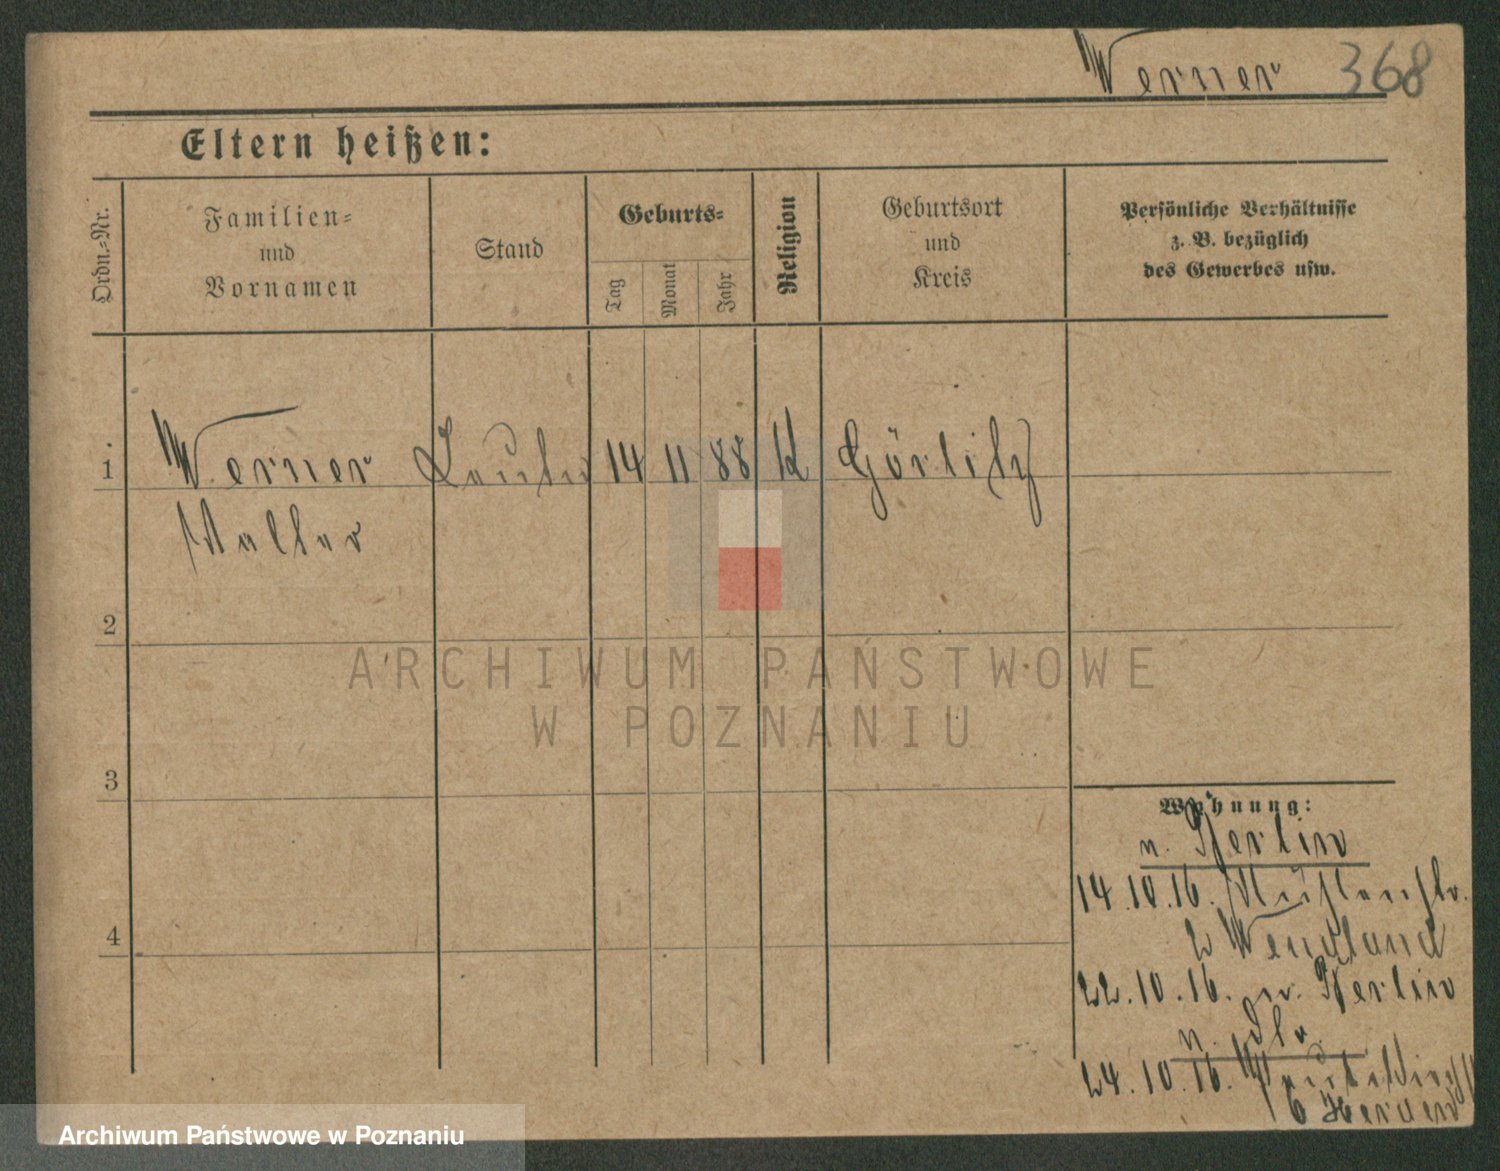 Werner 368
Eltern heißen:
Ordn.-Nr.
Familien-
und
Vornamen
Stand
Geburts-
Tag
Monat
Jahr
Religion
Geburtsort
und
Kreis
Persönliche Verhältnisse
z. B. bezüglich
des Gewerbes usw.
1 Werner 14 11 88 K Görlitz
2
3
4
Wohnung:
n. Berlin
14.10.16.
2 Wendland
22.10.16. n. Berlin
24.10.16.
6
ARCHIWUM PAŃSTWOWE
W POZNANIU
Archiwum Państwowe w Poznaniu